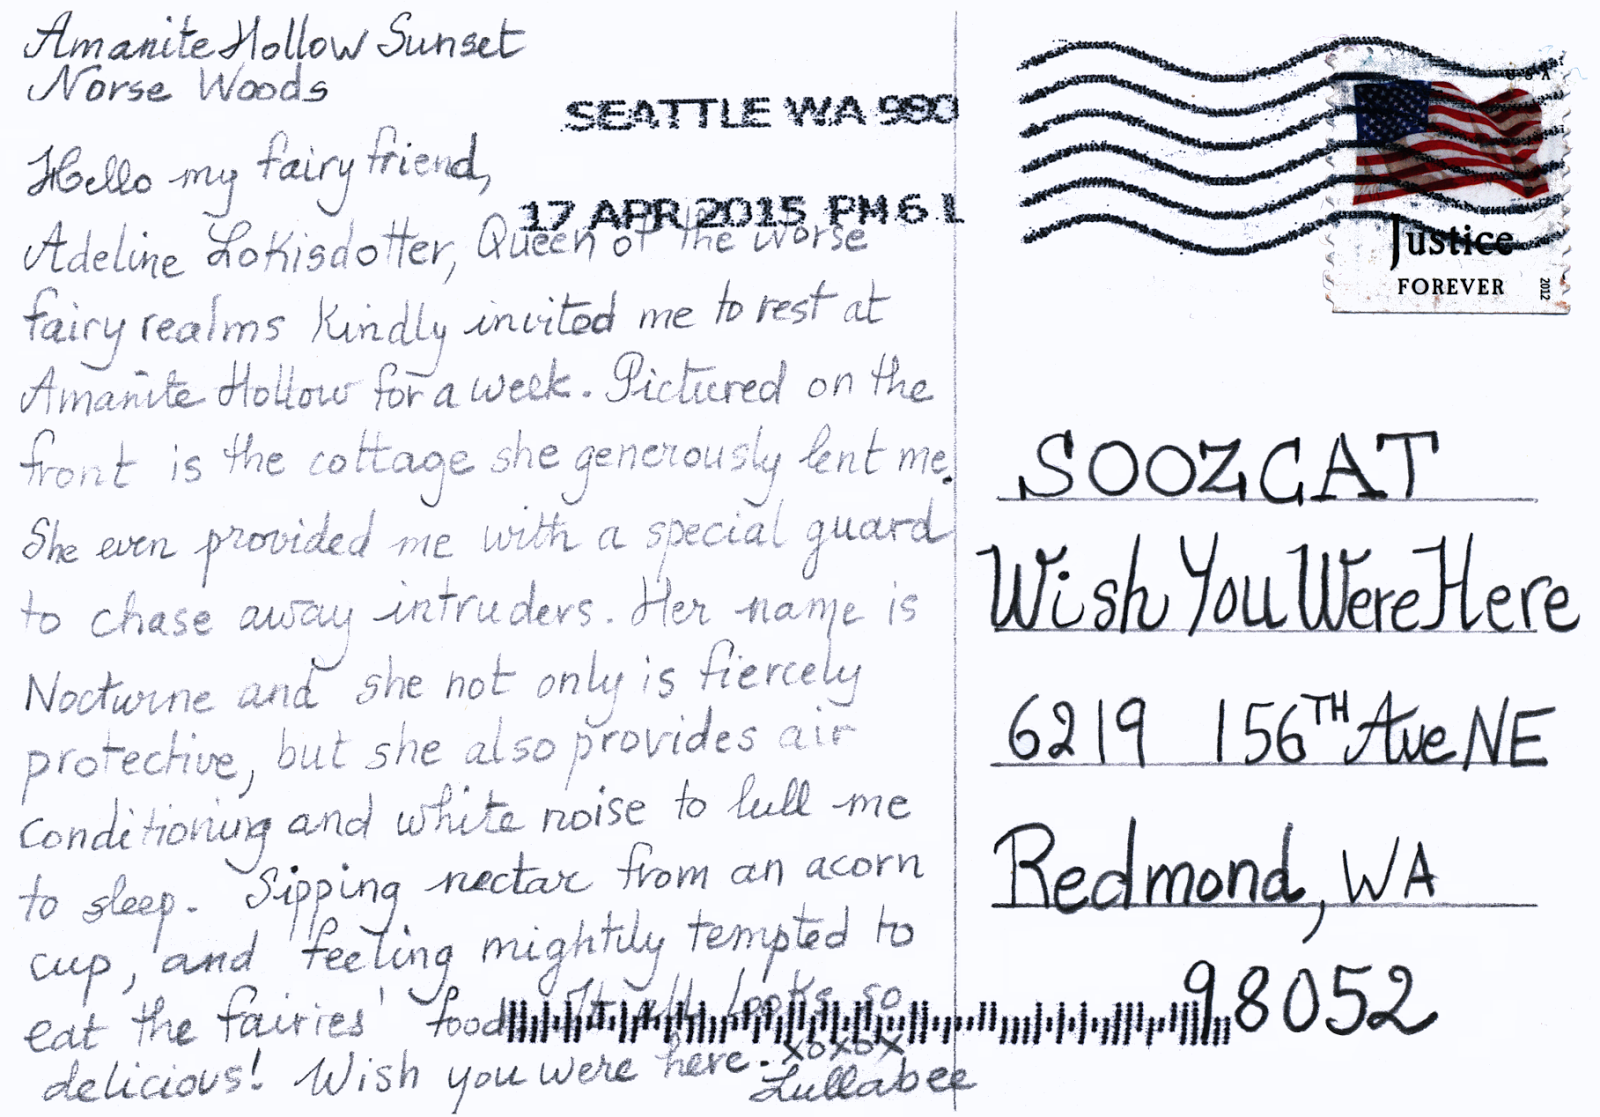 Amanite Hollow Sunset
Norse Woods
SEATTLE WA 980
17 APR 2015 PM 6 L
Hello my fairy friend,
Adeline Lokisdotter, Queen of the Norse
fairy realms kindly invited me to rest at
Amanite Hollow for a week. Pictured on the
front is the cottage she generously lent me.
She even provided me with a special guard
to chase away intruders. Her name is
Nocturne and she not only is fiercely
protective, but she also provides air
conditioning and white noise to lull me
to sleep. Sipping nectar from an acorn
cup, and feeling mightily tempted to
eat the fairies' food... It all looks so
delicious! Wish you were here. xoxox
Lullabee
USA
Justice
FOREVER
2012
SOOZCAT
Wish You Were Here
6219 156TH Ave NE
Redmond, WA
98052